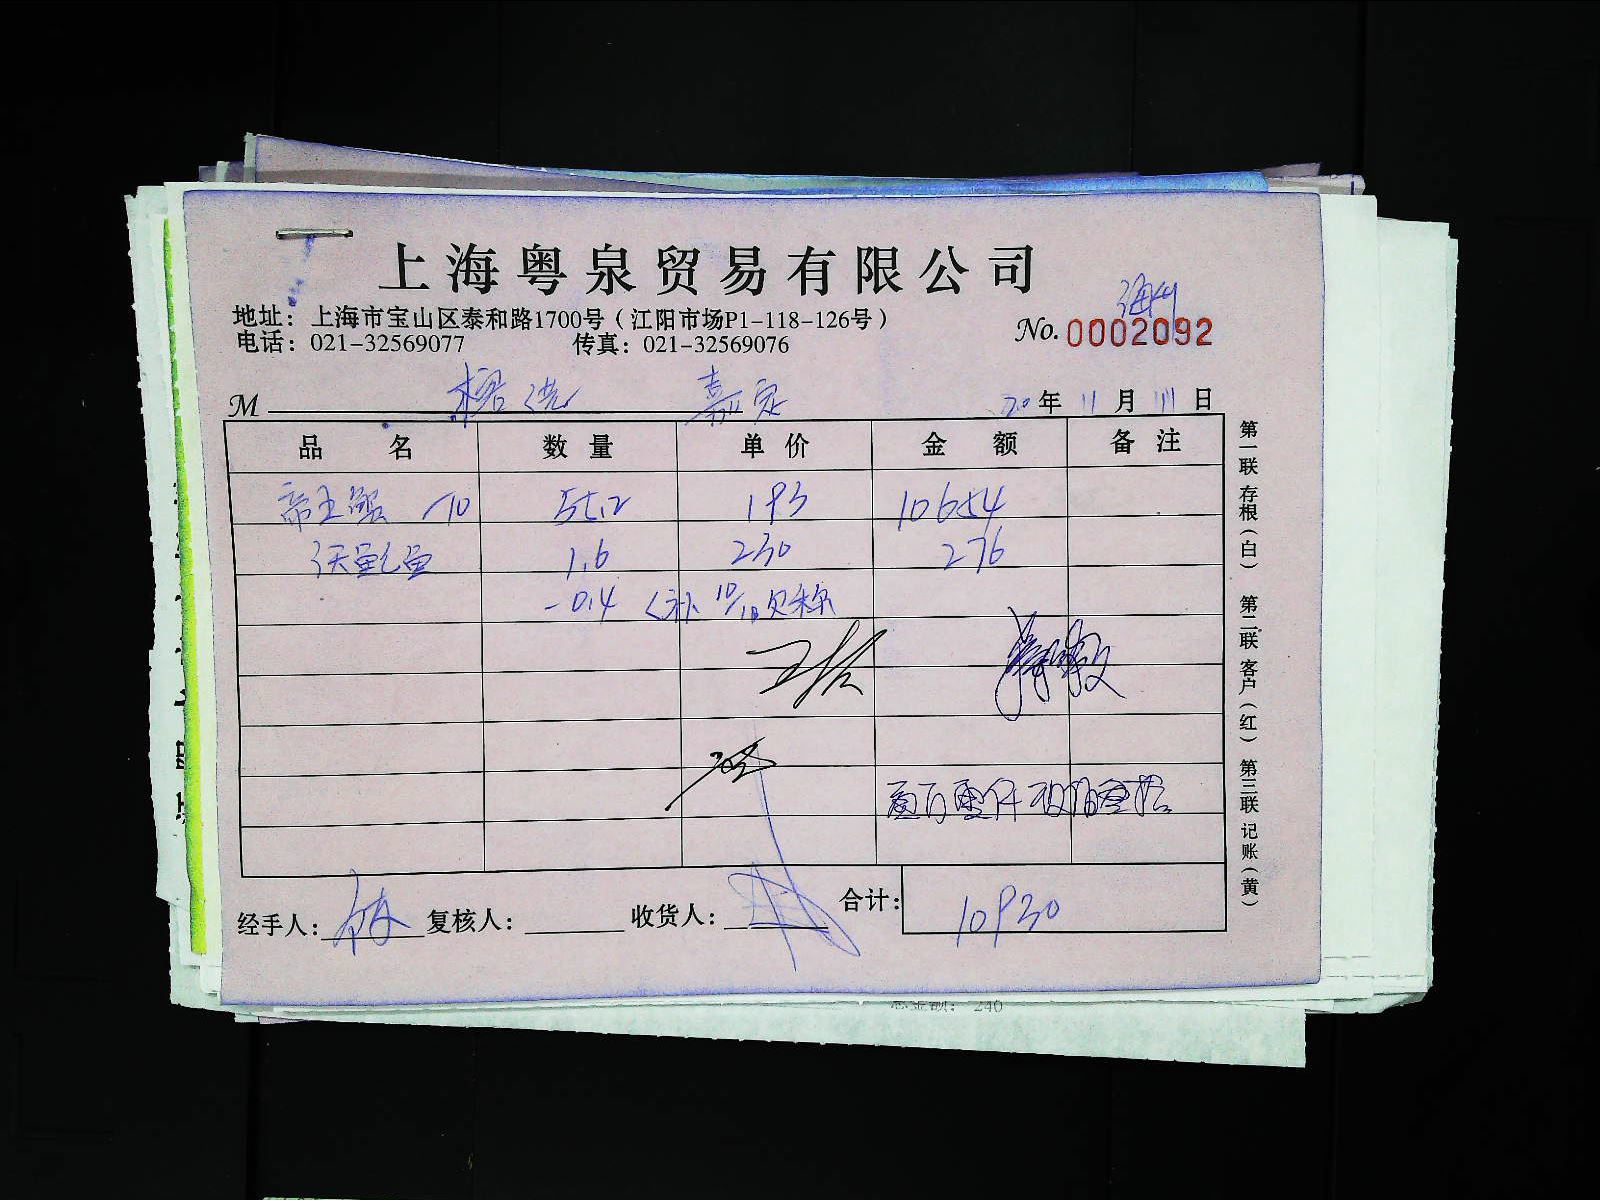 上海粤泉贸易有限公司
地址：上海市宝山区泰和路1700号（江阳市场P1-118-126号）
电话：021-32569077 传真：021-32569076
No. 0002092
M 嘉定 20年 11月 11日
品 名 数 量 单 价 金 额 备 注
帝王蟹 -10 55.2 193 10654
1.6 230 276
-0.4 （补 10/18 欠称
经手人： 复核人： 收货人： 合计： 10930
第一联 存根（白） 第二联 客户（红） 第三联 记账（黄）
总金额： 240